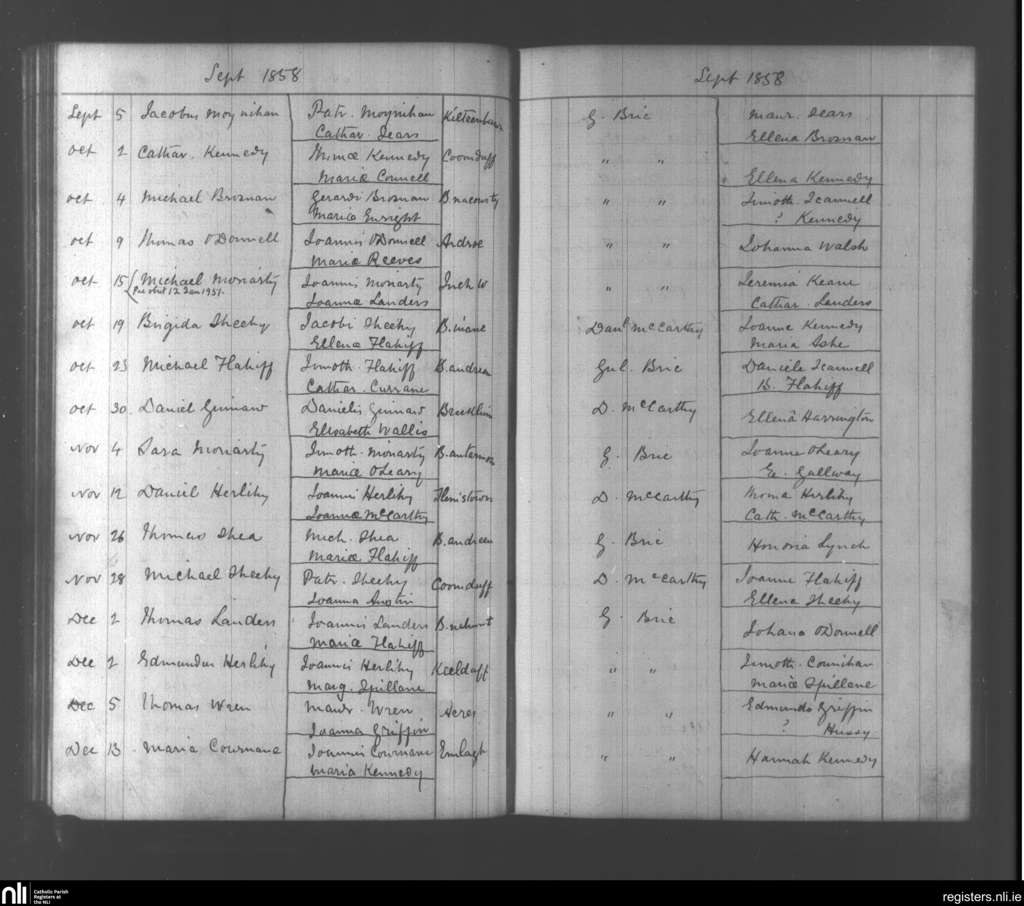 Sept 1858
Sept 1858
Sept 5 Jacobus Moynihan Patr. Moynihan G. Bric Maur. Sears
Cathar. Sears Ellena Brosnan
Oct 2 Cathar. Kennedy Thomæ Kennedy Coomduff " "
Mariæ Connell Ellena Kennedy
Oct 4 Michael Brosnan Gerardi Brosnan " " Timoth. Scannell
Mariæ Enright ? Kennedy
Oct 9 Thomas O'Donnell Joannis O'Donnell Ardroe " " Johanna Walsh
Mariæ Reeves
Oct 15 Michael Moriarty Joannis Moriarty Inch W " " Jeremia Keane
Pie obiit 12 Jan 1931. Joannæ Landers Cathar. Landers
Oct 19 Brigida Sheehy Jacobi Sheehy B. inane Danl McCarthy Joanne Kennedy
Ellena Flahiff Maria Ashe
Oct 23 Michael Flahiff Timoth. Flahiff B. andreen Gul. Bric Daniele Scannell
Cathar. Currane B. Flahiff
Oct 30. Daniel Guinaw Danielis Guinaw D. McCarthy Ellenâ Harrington
Elisabeth Wallis
Nov 4 Sara Moriarty Timoth. Moriarty G. Bric Joanne O'Leary
Mariæ O'Leary El. Gallway
Nov 12 Daniel Herlihy Joannis Herlihy Flemistown D. McCarthy Thoma Herlihy
Joannæ McCarthy Cath. McCarthy
Nov 26 Thomas Shea Mich. Shea B. andreen G. Bric Honoria Lynch
Mariæ Flahiff
Nov 28 Michael Sheehy Patr. Sheehy Coomduff D. McCarthy Joanne Flahiff
Joanna Austin Ellena Sheehy
Dec 2 Thomas Landers Joannis Landers B. nehunt G. Bric Johana O'Donnell
Mariæ Flahiff
Dec 2 Edmundus Herlihy Joannis Herlihy Keelduff " " Timoth. Counihan
Marg. Spillane Mariâ Spillane
Dec 5 Thomas Wren Maur. Wren Acres " " Edmundo Griffin
Joanna Griffin ? Hussy
Dec 13. Maria Cournane Joannis Cournane Emlagh " " Hannah Kennedy
Maria Kennedy
nli Catholic Parish
Registers at
the NLI
registers.nli.ie